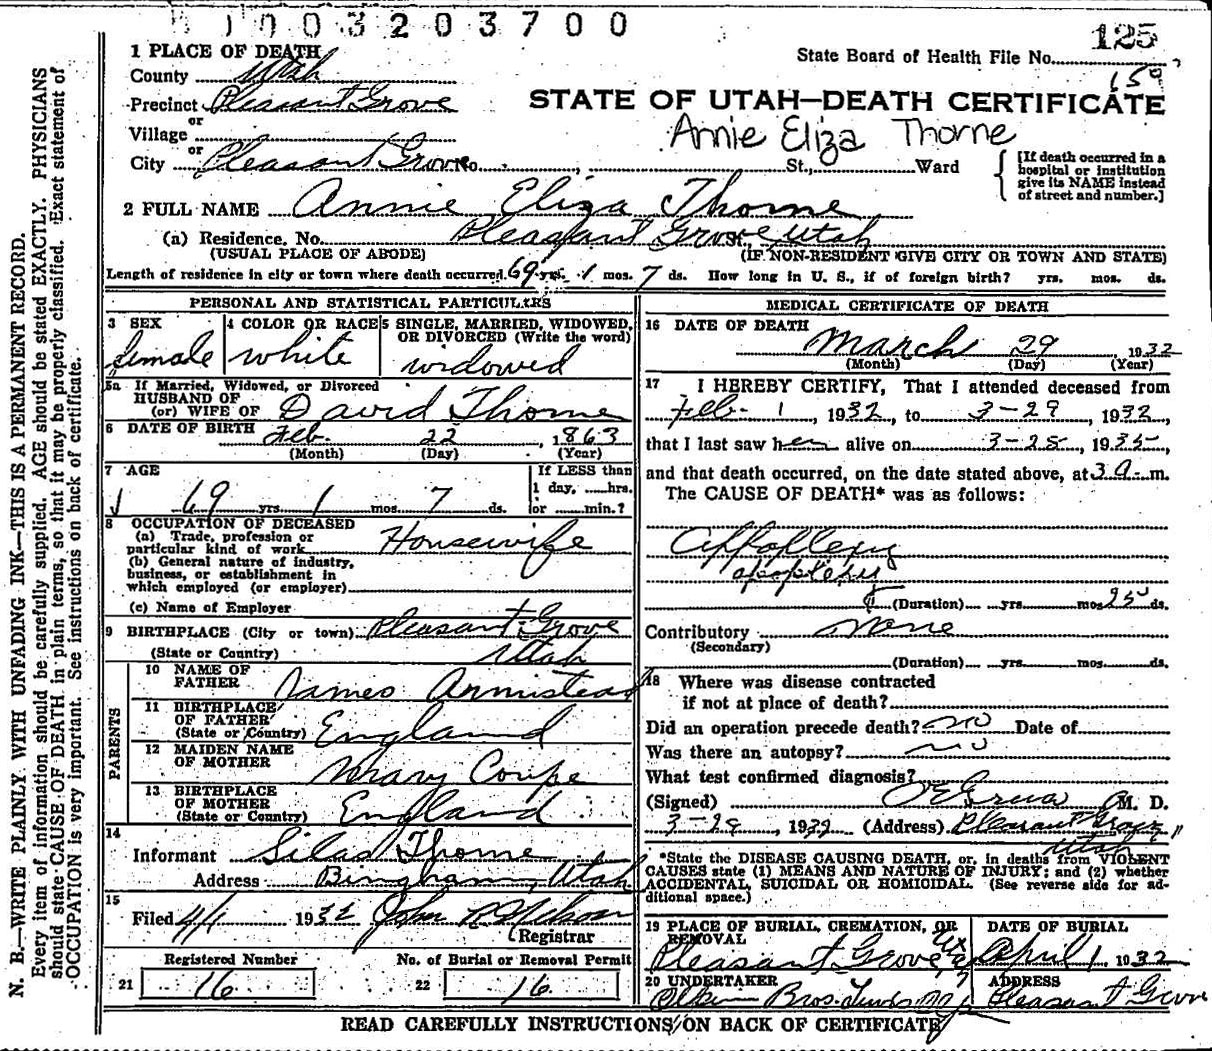 1003203700
125
State Board of Health File No.
150
STATE OF UTAH—DEATH CERTIFICATE
Annie Eliza Thorne
1 PLACE OF DEATH
County Utah
Precinct Pleasant Grove
or
Village
or
City Pleasant Grove No. St., Ward
[If death occurred in a hospital or institution give its NAME instead of street and number.]
2 FULL NAME Annie Eliza Thorne
(a) Residence. No. Pleasant Grove St., Utah
(USUAL PLACE OF ABODE) (IF NON-RESIDENT GIVE CITY OR TOWN AND STATE)
Length of residence in city or town where death occurred 69 yrs. 1 mos. 7 ds. How long in U. S., if of foreign birth? yrs. mos. ds.
PERSONAL AND STATISTICAL PARTICULARS
3 SEX
female
4 COLOR OR RACE
white
5 SINGLE, MARRIED, WIDOWED, OR DIVORCED (Write the word)
widowed
5a If Married, Widowed, or Divorced
HUSBAND OF
(or) WIFE OF David Thorne
6 DATE OF BIRTH Feb. 22, 1863
(Month) (Day) (Year)
7 AGE
69 yrs. 1 mos. 7 ds.
If LESS than
1 day, hrs.
or min.?
8 OCCUPATION OF DECEASED
(a) Trade, profession or
particular kind of work Housewife
(b) General nature of industry,
business, or establishment in
which employed (or employer)
(c) Name of Employer
9 BIRTHPLACE (City or town) Pleasant Grove
(State or Country) Utah
PARENTS
10 NAME OF
FATHER James Armistead
11 BIRTHPLACE
OF FATHER
(State or Country) England
12 MAIDEN NAME
OF MOTHER Mary Coupe
13 BIRTHPLACE
OF MOTHER
(State or Country) England
14
Informant Silas Thorne
Address Bingham, Utah
15
Filed 4/1 1932 John R Nelson
Registrar
Registered Number
21 16
No. of Burial or Removal Permit
22 16
MEDICAL CERTIFICATE OF DEATH
16 DATE OF DEATH
March 29, 1932
(Month) (Day) (Year)
17 I HEREBY CERTIFY, That I attended deceased from
Feb. 1, 1932, to 3-29, 1932,
that I last saw her alive on 3-28, 1935,
and that death occurred, on the date stated above, at 3 a. m.
The CAUSE OF DEATH* was as follows:
Appoplexy
apoplexy
(Duration) yrs. mos. 25 ds.
Contributory None
(Secondary)
(Duration) yrs. mos. ds.
18 Where was disease contracted
if not at place of death?
Did an operation precede death? no Date of
Was there an autopsy? no
What test confirmed diagnosis?
(Signed) M. D.
3-29, 1932 (Address) Pleasant Grove,
Utah
*State the DISEASE CAUSING DEATH, or, in deaths from VIOLENT
CAUSES state (1) MEANS AND NATURE OF INJURY; and (2) whether
ACCIDENTAL, SUICIDAL OR HOMICIDAL. (See reverse side for ad-
ditional space.)
19 PLACE OF BURIAL, CREMATION, OR
REMOVAL
Pleasant Grove,
DATE OF BURIAL
April 1, 1932
20 UNDERTAKER
Bros.
ADDRESS
Pleasant Grove
READ CAREFULLY INSTRUCTIONS ON BACK OF CERTIFICATE
N. B.—WRITE PLAINLY WITH UNFADING INK—THIS IS A PERMANENT RECORD.
Every item of information should be carefully supplied. AGE should be stated EXACTLY. PHYSICIANS
should state CAUSE OF DEATH in plain terms, so that it may be properly classified. Exact statement of
OCCUPATION is very important. See instructions on back of certificate.